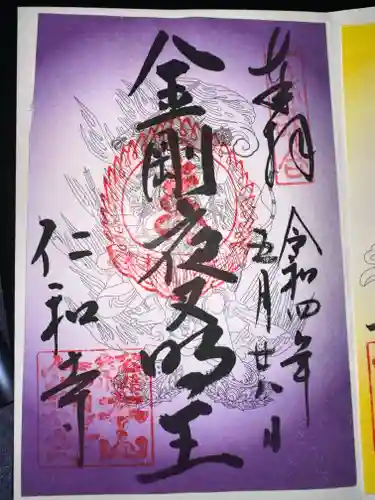 奉拝
令和四年
五月廿六日
金剛夜叉明王
仁和寺